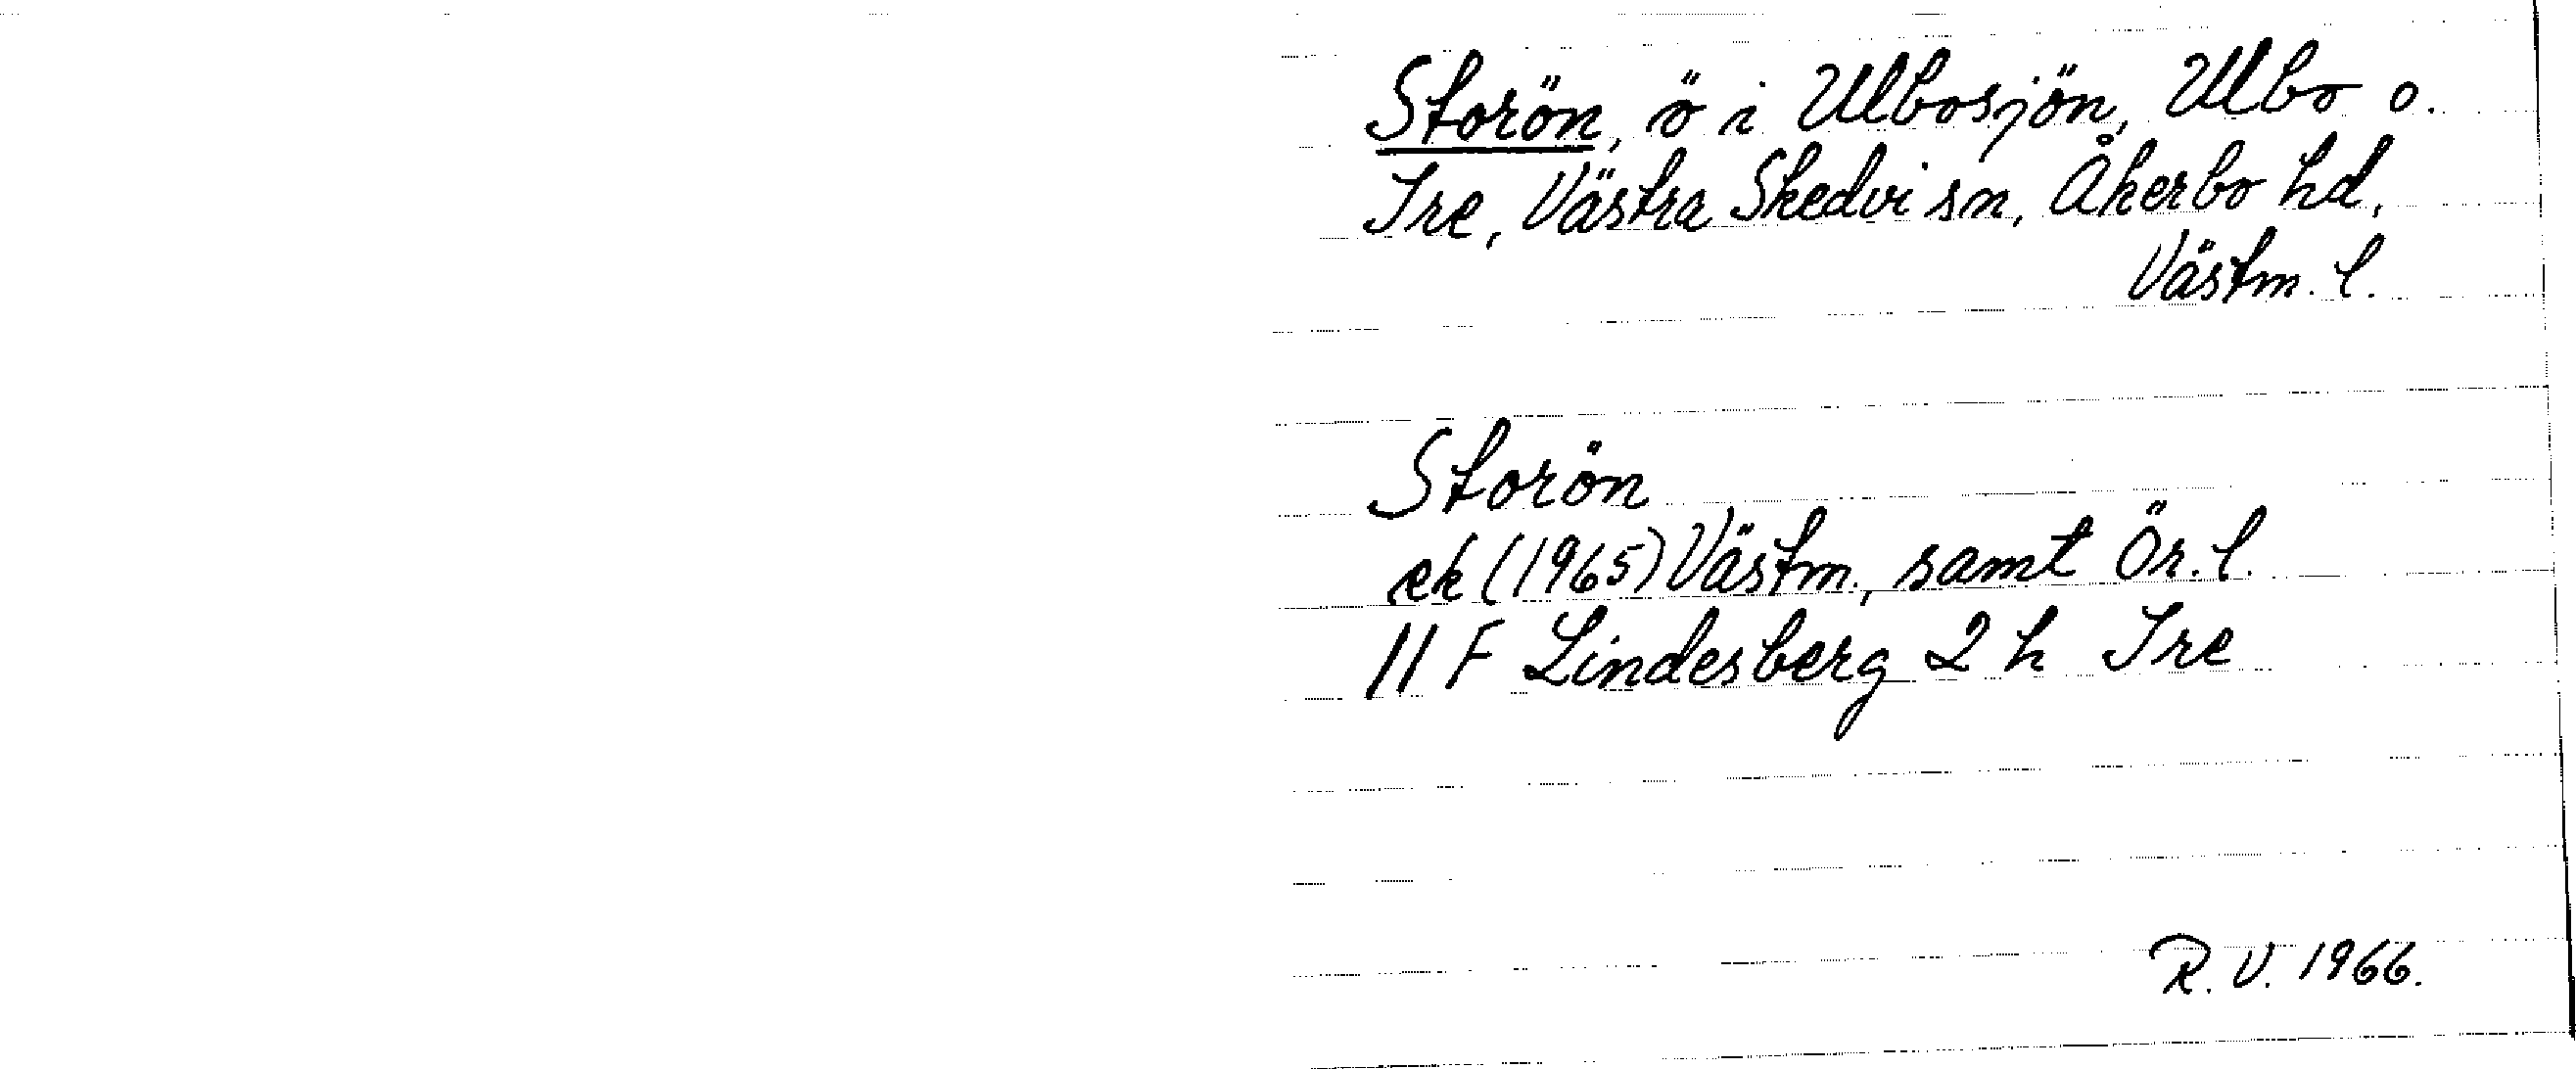 Storön, ö i Ulbosjön, Ulbo o.
Tre, Västra Skedvi sn, Åkerbo hd,
Västm. l.
Storön
ek (1965) Västm., samt Ör. l.
11 F Lindesberg 2 h Tre
R. V. 1966.